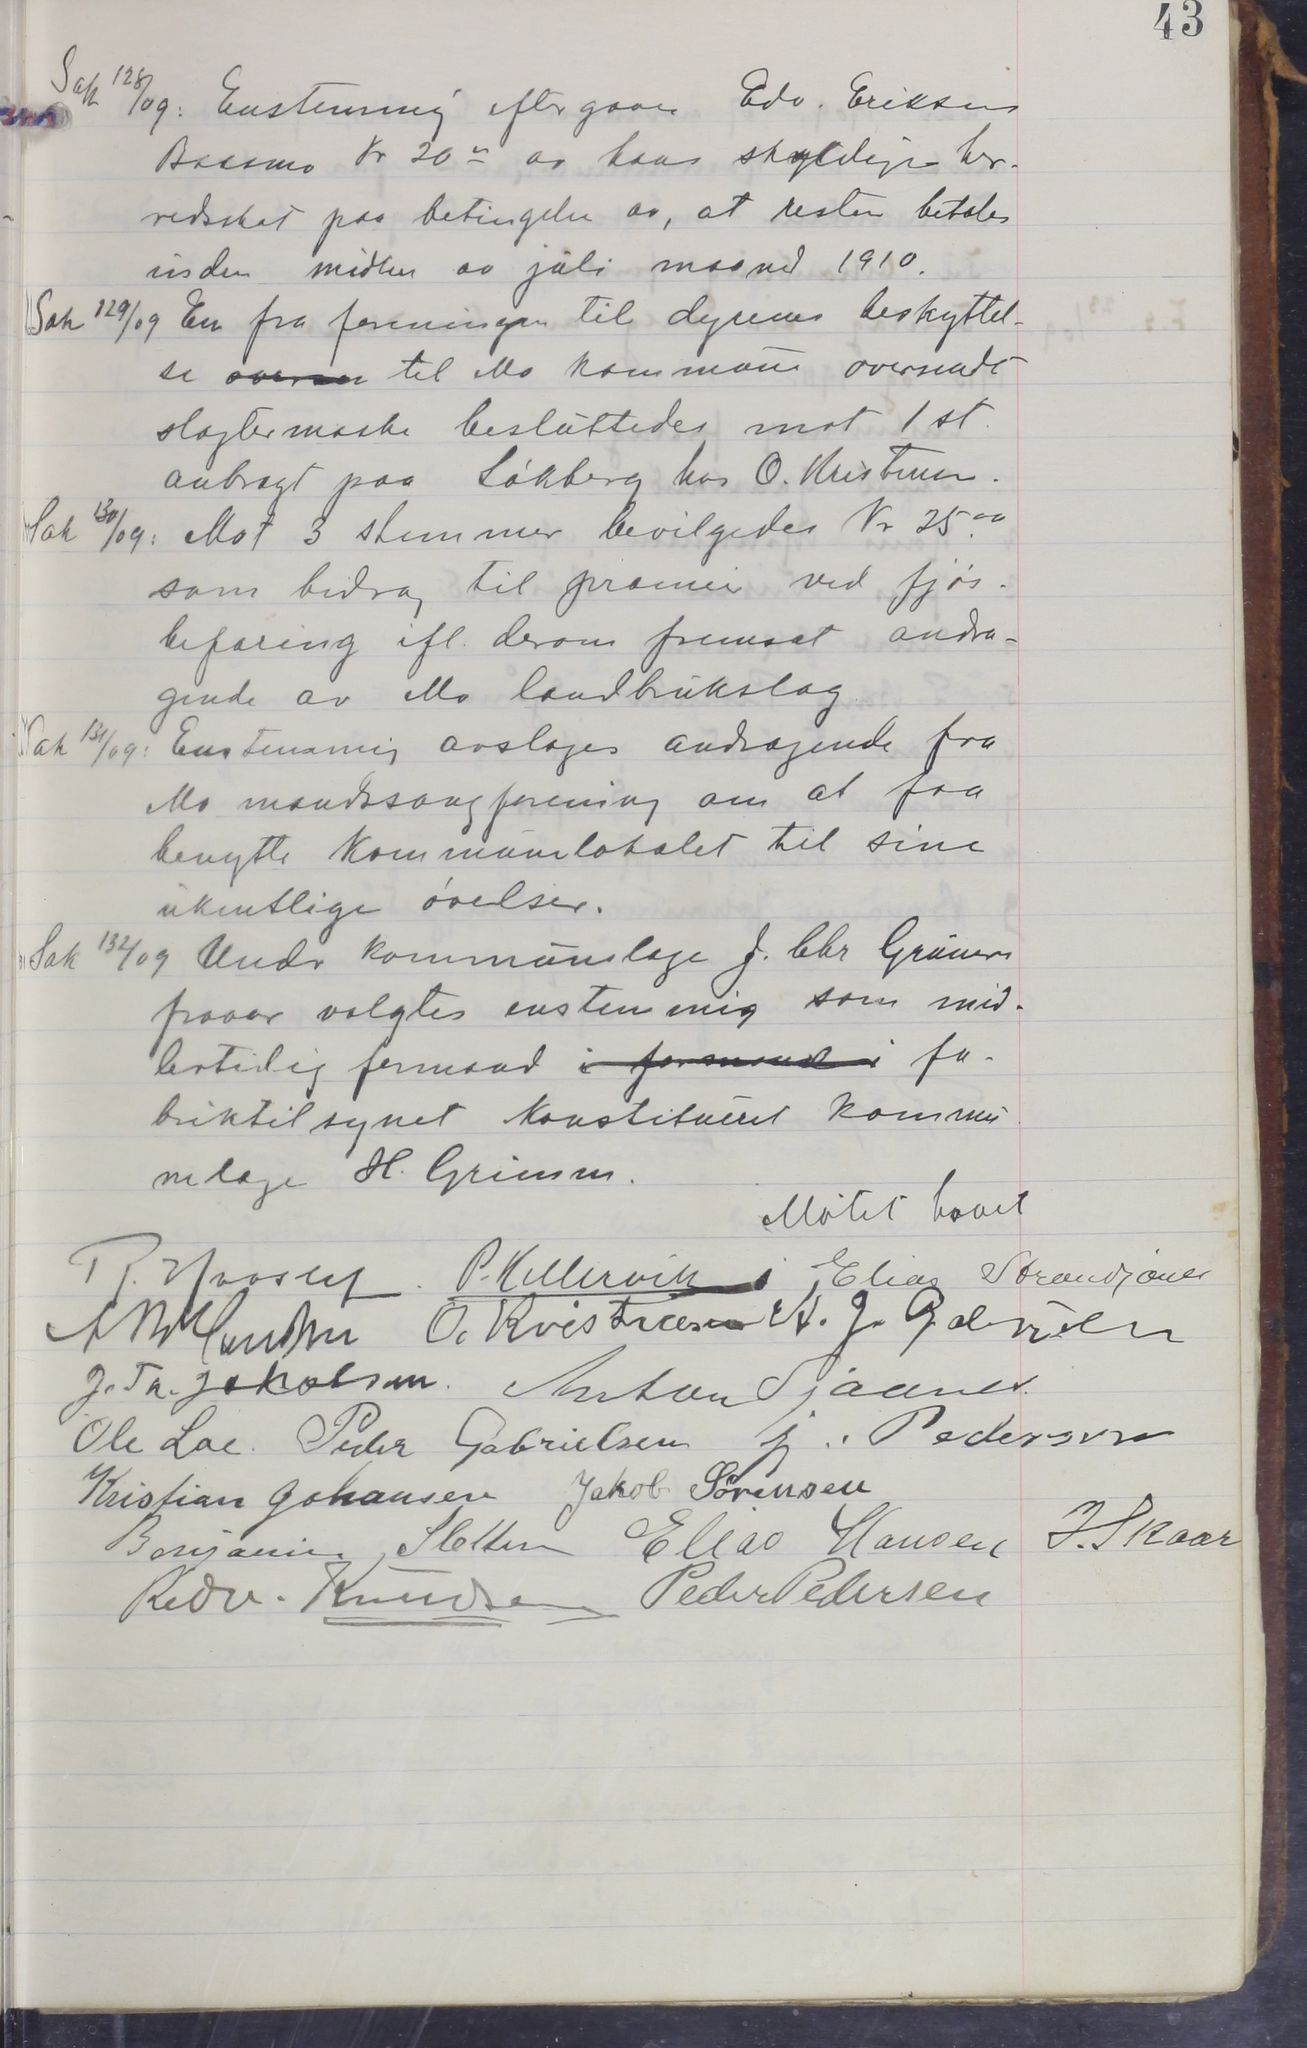 43
Sak 128/09: Enstemmig eftergaves Edv. Eriksen
Baasmo Kr 20 av hans skyldige her-
redsskat paa betingelse av, at resten betales
inden midten av juli maaned 1910.
Sak 129/09 En fra foreningen til dyrenes beskyttel-
se til Mo kommune oversendt
slagtermaske besluttedes mot 1 st.
anbragt paa Løkberg hos O. Kristensen.
Sak 130/09: Mot 3 stemmer bevilgedes Kr 25.00
som bidrag til præmier ved fjøs-
befaring ifl. derom fremsat andra-
gende av Mo landbrukslag
Sak 131/09: Enstemmig avslages andragende fra
Mo mandssangforening om at faa
benytte kommunelokalet til sine
ukentlige øvelser.
Sak 132/09 Under kommunelæge J. Chr Grüners
fravær valgtes enstemmig som mid-
lertidig formand i formand i fa-
briktilsynet konstitueret kommu
nelæge H. Grimm.
Møtet hævet
P. Kellervik Elias Strandjord
O. Kristensen A. J.
J. Th. Jakobsen. Anton
Ole Lae. Peder Gabrielsen J. Pedersen
Kristian Johansen Jakob Sørensen
Benjamin Sletten Elias Hansen I. Skaar
Redv. Knudsen Peder Pedersen